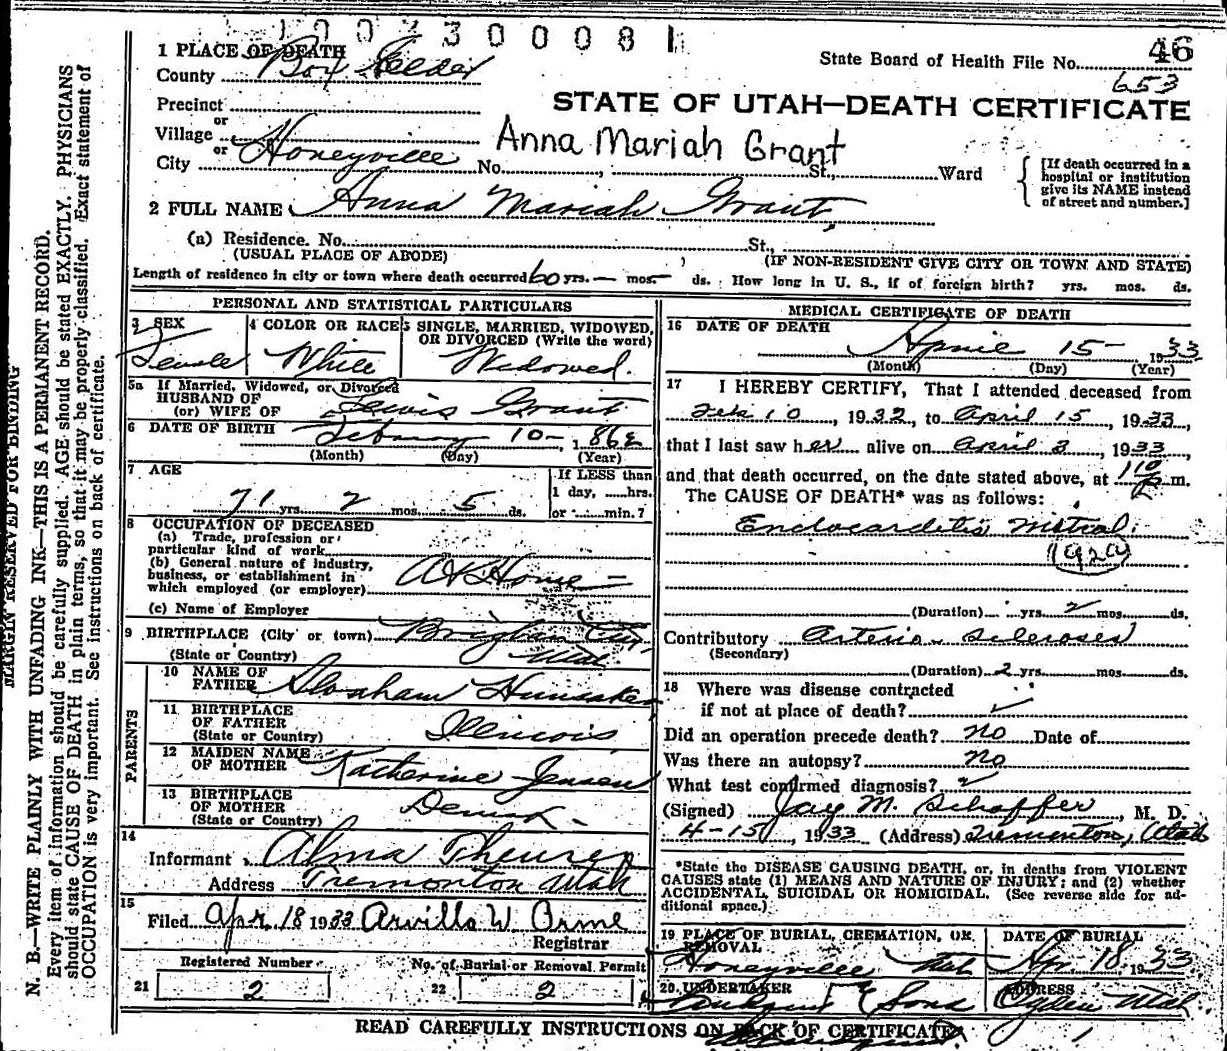 1007300081
46
State Board of Health File No. 653
1 PLACE OF DEATH
County Box Elder
STATE OF UTAH—DEATH CERTIFICATE
Precinct
or
Village
Anna Mariah Grant
or
City Honeyville No. St., Ward
[If death occurred in a
hospital or institution
give its NAME instead
of street and number.]
2 FULL NAME Anna Mariah Grant,
(a) Residence. No. St.,
(USUAL PLACE OF ABODE) (IF NON-RESIDENT GIVE CITY OR TOWN AND STATE)
Length of residence in city or town where death occurred 60 yrs. — mos. — ds. How long in U. S., if of foreign birth? yrs. mos. ds.
PERSONAL AND STATISTICAL PARTICULARS
3 SEX
Female
4 COLOR OR RACE
White
5 SINGLE, MARRIED, WIDOWED,
OR DIVORCED (Write the word)
Widowed.
5a If Married, Widowed, or Divorced
HUSBAND OF
(or) WIFE OF Lewis Grant
6 DATE OF BIRTH February 10 — 1862
(Month) (Day) (Year)
7 AGE
71 yrs. 2 mos. 5 ds.
If LESS than
1 day, ......hrs.
or ......min.?
8 OCCUPATION OF DECEASED
(a) Trade, profession or
particular kind of work
(b) General nature of industry,
business, or establishment in
which employed (or employer) At Home
(c) Name of Employer
9 BIRTHPLACE (City or town) Brigham City
(State or Country) Utah.
PARENTS
10 NAME OF
FATHER Abraham Hunsaker
11 BIRTHPLACE
OF FATHER
(State or Country) Illinois
12 MAIDEN NAME
OF MOTHER Katherine Jensen
13 BIRTHPLACE
OF MOTHER
(State or Country)
14
Informant Alma Theurer
Address Tremonton Utah
15
Filed Apr. 18 1933 Arvilla W. Orme
Registrar
Registered Number
21 2
No. of Burial or Removal Permit
22 2
MEDICAL CERTIFICATE OF DEATH
16 DATE OF DEATH
April 15 — 1933
(Month) (Day) (Year)
17 I HEREBY CERTIFY, That I attended deceased from
Feb 10, 1932, to April 15, 1933,
that I last saw her alive on April 3, 1933
and that death occurred, on the date stated above, at m.
The CAUSE OF DEATH* was as follows:
Endocarditis Mitral.
(Duration) yrs. 2 mos. ds.
Contributory Arterio-scleroses
(Secondary)
(Duration) 2 yrs. mos. ds.
18 Where was disease contracted
if not at place of death?
Did an operation precede death? no Date of
Was there an autopsy? no
What test confirmed diagnosis?
(Signed) Jay M. Schaffer, M. D.
4-15, 1933 (Address) Tremonton, Utah
*State the DISEASE CAUSING DEATH, or, in deaths from VIOLENT
CAUSES state (1) MEANS AND NATURE OF INJURY; and (2) whether
ACCIDENTAL, SUICIDAL OR HOMICIDAL. (See reverse side for ad-
ditional space.)
19 PLACE OF BURIAL, CREMATION, OR
REMOVAL
Honeyville Utah
DATE OF BURIAL
Apr. 18, 1933
20. UNDERTAKER
& Sons
ADDRESS
Ogden Utah
READ CAREFULLY INSTRUCTIONS ON BACK OF CERTIFICATE
MARGIN RESERVED FOR BINDING
N. B.—WRITE PLAINLY WITH UNFADING INK—THIS IS A PERMANENT RECORD.
Every item of information should be carefully supplied. AGE should be stated EXACTLY. PHYSICIANS
should state CAUSE OF DEATH in plain terms, so that it may be properly classified. Exact statement of
OCCUPATION is very important. See instructions on back of certificate.